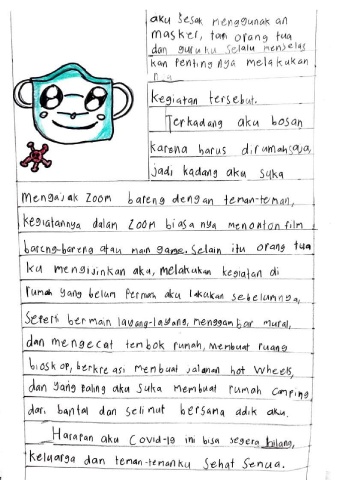 aku sesak menggunak an
masker, tapi orang tua
dan guruku selalu menjelas
kan pentingnya melakukan
kegiatan tersebut.
Terkadang aku bosan
karena harus dirumah saja,
jadi kadang aku suka
mengajak zoom bareng dengan teman-teman,
kegiatannya dalam zoom biasanya menonton film
bareng-bareng atau main game. Selain itu orang tua
ku mengijinkan aku, melakukan kegiatan di
rumah yang belum pernah aku lakukan sebelumnya,
seperti bermain layang-layang, menggambar mural,
dan mengecat tembok rumah, membuat ruang
bioskop, berkreasi membuat jalanan hot wheels,
dan yang paling aku suka membuat rumah camping
dari bantal dan selimut bersama adik aku.
Harapan aku Covid-19 ini bisa segera hilang,
keluarga dan teman-temanku sehat semua.